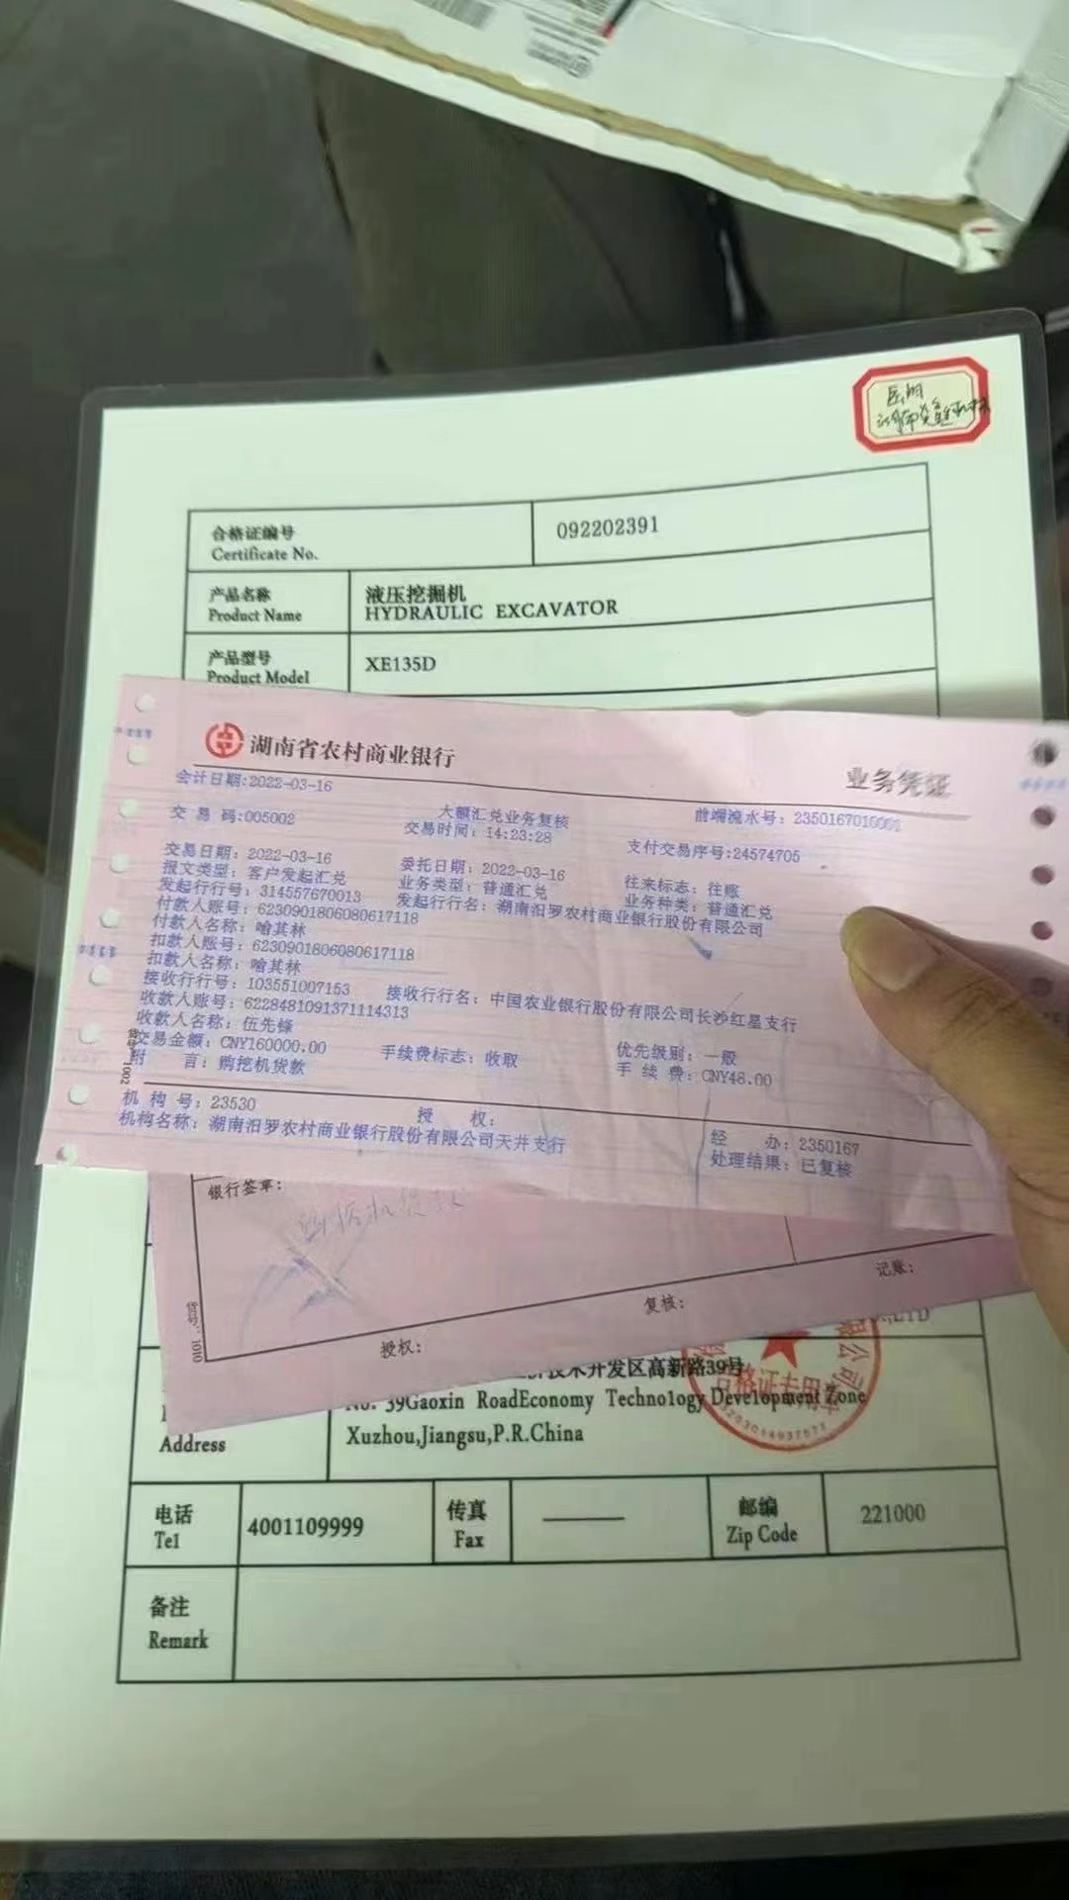 合格证编号
Certificate No.
092202391
产品名称
Product Name
液压挖掘机
HYDRAULIC EXCAVATOR
产品型号
Product Model
XE135D
湖南省农村商业银行
业务凭证
会计日期:2022-03-16
交易码:005002
大额汇兑业务复核
前端流水号:
交易时间:14:23:28
支付交易序号:24574705
交易日期:2022-03-16
委托日期:2022-03-16
往来标志:往账
报文类型:客户发起汇兑
业务类型:普通汇兑
业务种类:普通汇兑
发起行行号:314557670013
发起行行名:湖南汨罗农村商业银行股份有限公司
付款人账号:6230901806080617118
付款人名称:喻其林
扣款人账号:6230901806080617118
扣款人名称:喻其林
接收行行号:103551007153
接收行行名:中国农业银行股份有限公司长沙红星支行
收款人账号:6228481091371114313
收款人名称:伍先
交易金额:CNY160000.00
手续费标志:收取
优先级别:一般
附言:购挖机货款
手续费:CNY48.00
机构号:23530
授权:
机构名称:湖南汨罗农村商业银行股份有限公司天井支行
经办:2350167
处理结果:已复核
银行签章:
记账:
复核:
授权:
货号:1010
技术开发区高新路39号
No. 39Gaoxin RoadEconomy Technology Development Zone
Xuzhou,Jiangsu,P.R.China
Address
合格证专用章
电话
Tel
4001109999
传真
Fax
邮编
Zip Code
221000
备注
Remark